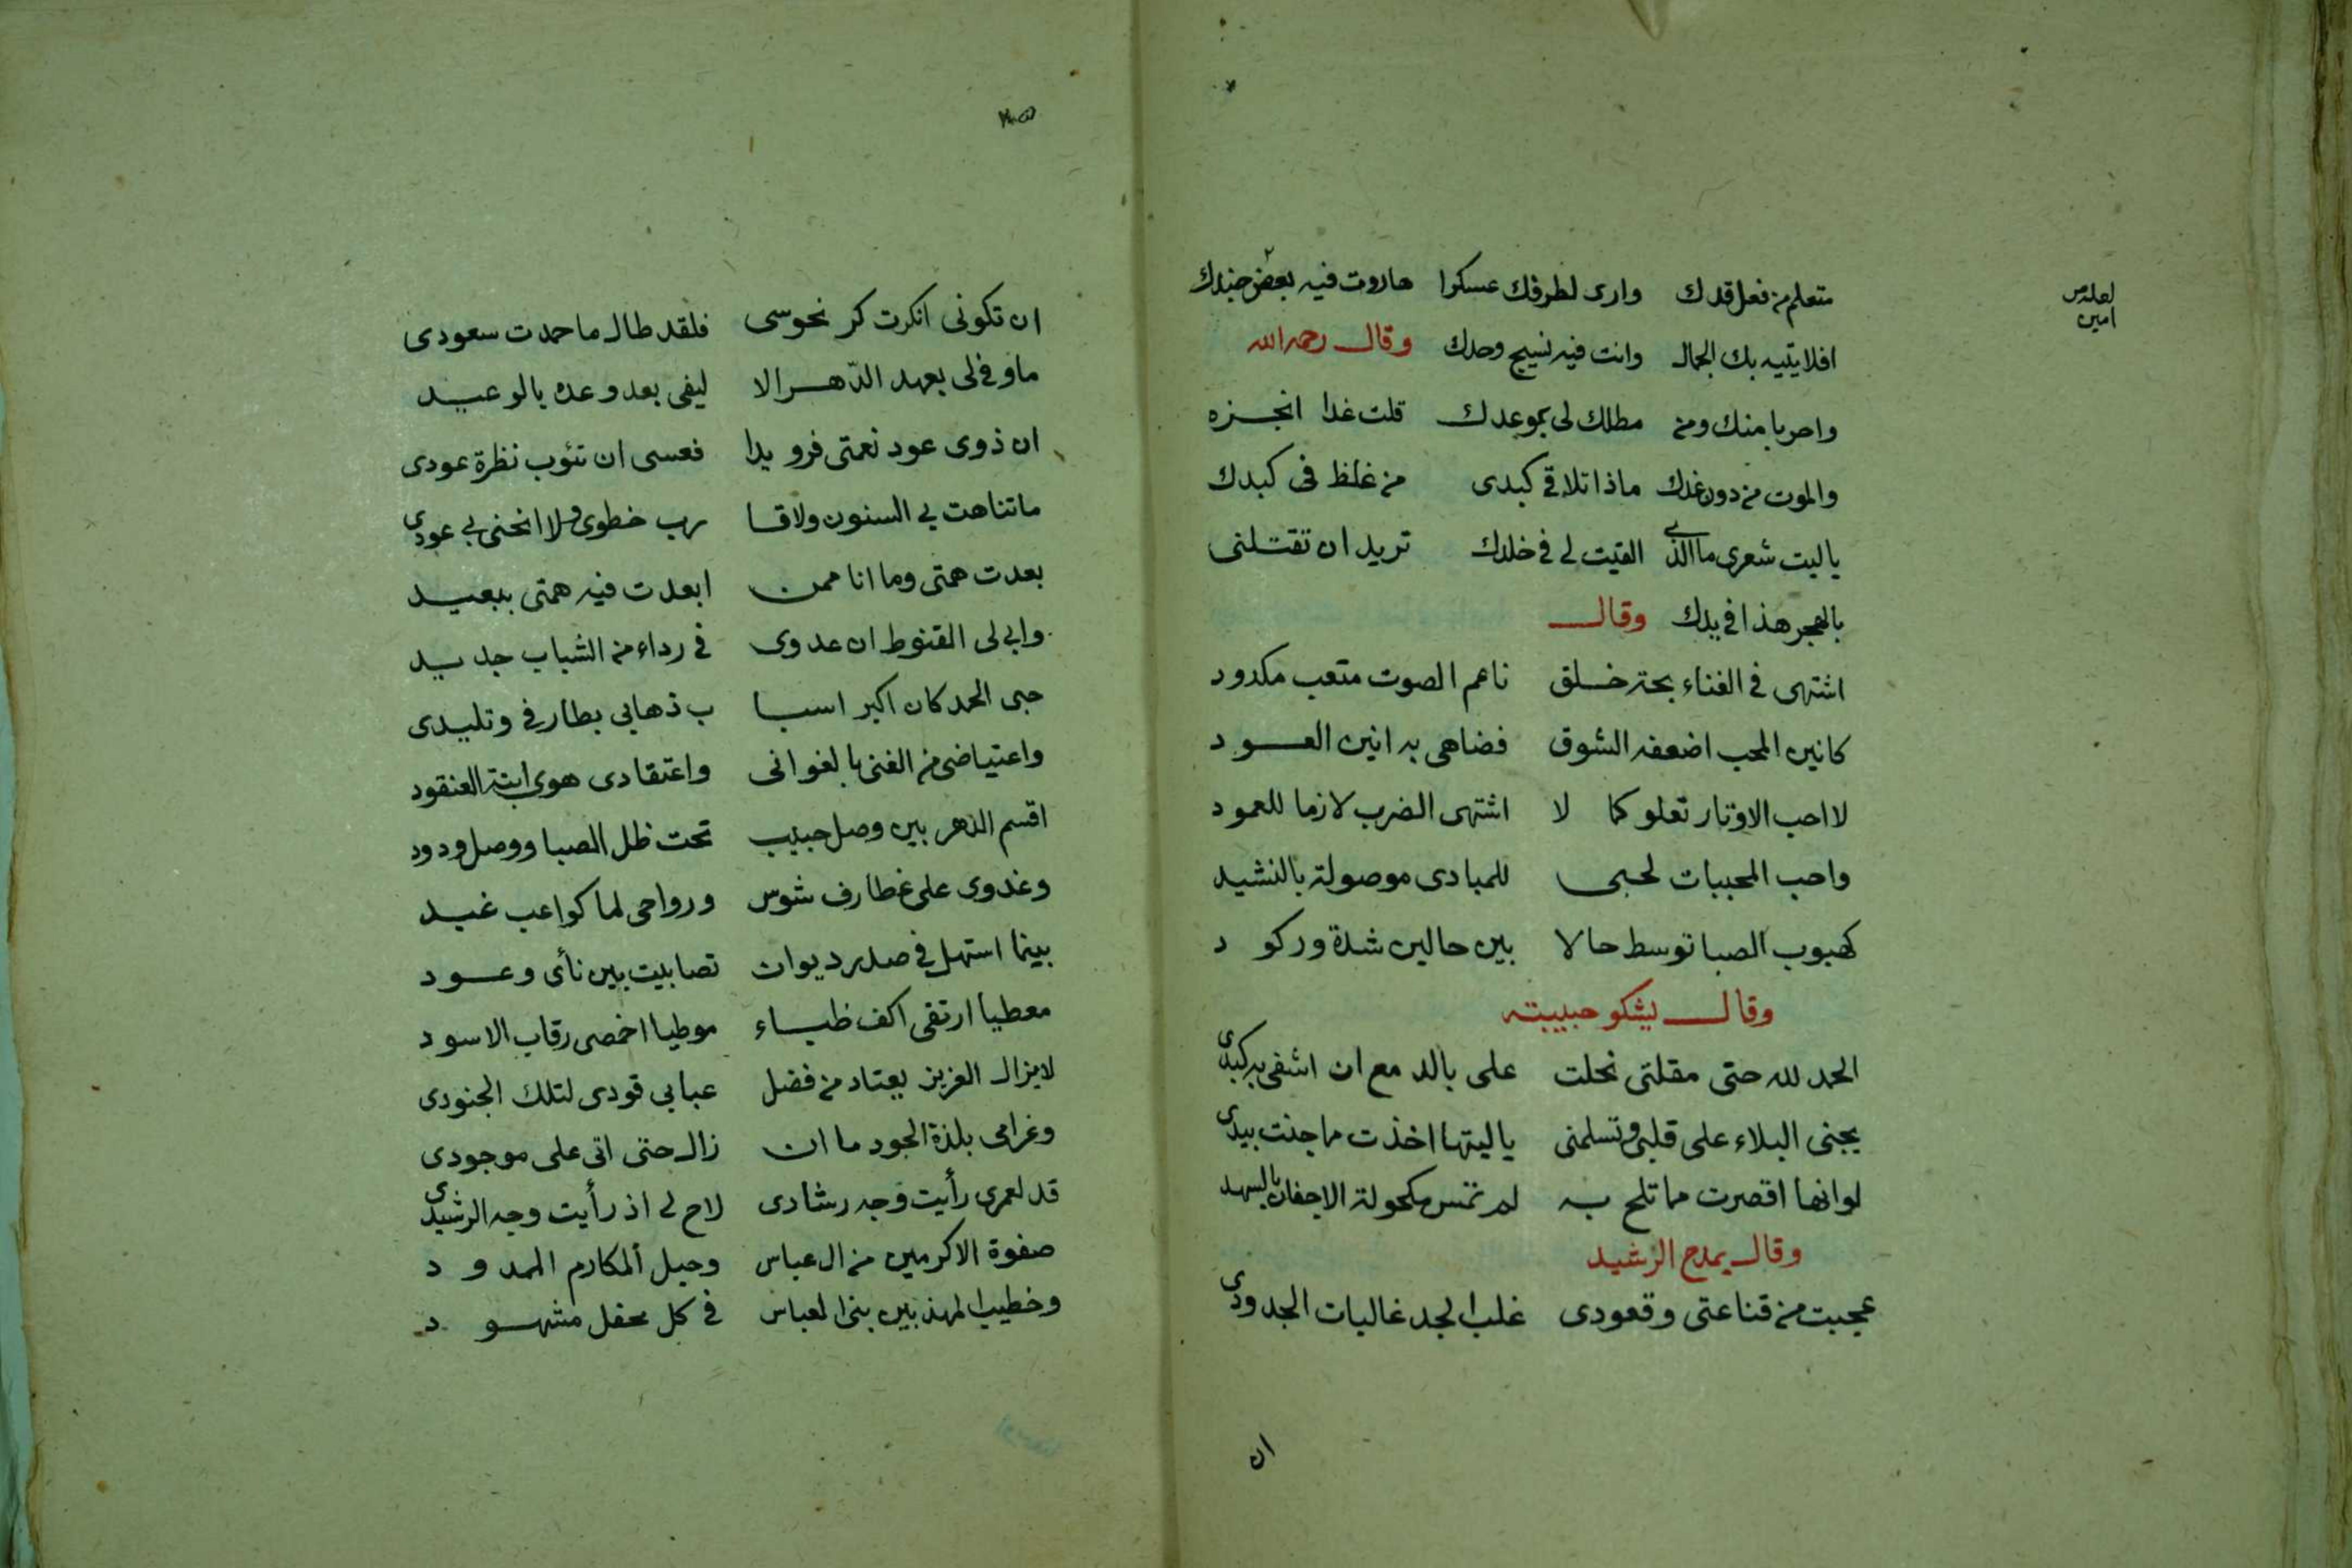 متعلم من فعل قدك وارى لطرفك عسكرا هاروت فيه بعض جندك
افلا يتيه بك الجمال وانت فيه نسيج وحدك وقال رحمه الله
واحربا منك ومن مطلك لى بموعدك قلت غدا انجزه
والموت من دون غدك ماذا تلاقى كبدى من غلظ فى كبدك
ياليت شعرى ما الذى القيت لى فى خلدك تريد ان تقتلنى
بالهجر هذا فى يدك وقال
اشتهى فى الغناء بحة خلق ناعم الصوت متعب مكدود
كانين المحب اضعفه الشوق فضاهى به انين العود
لا احب الاوتار تعلو كما لا اشتهى الضرب لازما للعمود
واحب المحببات لحبى للمبادى موصولة بالنشيد
كهبوب الصبا توسط حالا بين حالين شدة وركود
وقال يشكو حبيبته
الحمد لله حتى مقلتى نحلت على بالدمع ان اشفى به كبدى
يجنى البلاء على قلبى وتسلمنى ياليتها اخذت ما جنت بيدى
لوانها اقصرت مما تلح به لم تمس مكحولة الاجفان بالسهد
وقال يمدح الرشيد
عجبت من قناعتى وقعودى غلب الجد غاليات الجدودى
ان
لعله من
امين
ان تكونى انكرت كر نحوسى فلقد طال ما حمدت سعودى
ما وفى لى بعهد الدهر الا ليفى بعد وعده بالوعيد
ان ذوى عود نعمتى فرويدا فعسى ان تئوب نظرة عودى
ما تناهت بى السنون ولا قا رب خطوى ولا انحنى بى عودى
بعدت همتى وما انا ممن ابعدت فيه همتى ببعيد
وابى لى القنوط ان عدوى فى رداء من الشباب جديد
حبى الحمد كان اكبر اسبا ب ذهابى بطارفى وتليدى
واعتياضى من الغنى بالغوانى واعتقادى هوى ابنة العنقود
اقسم الدهر بين وصل حبيب تحت ظل الصبا ووصل ودود
وغدوى على غطارف شوس ورواحى لما كواعب غيد
بينما استهل فى صدر ديوان تصابيت بين نأى وعود
معطيا ارتقى اكف ظباء موطيا اخمصى رقاب الاسود
لا يزال العزيز يعتاد من فضل عبابى قودى لتلك الجنودى
وغرامى بلذة الجود ما ان زال حتى اتى على موجودى
قد لعمرى رأيت وجه رشادى لاح لى اذ رأيت وجه الرشيدى
صفوة الاكرمين من ال عباس وحبل المكارم الممدود
وخطيب المهذبين بنى العباس فى كل محفل مشهود